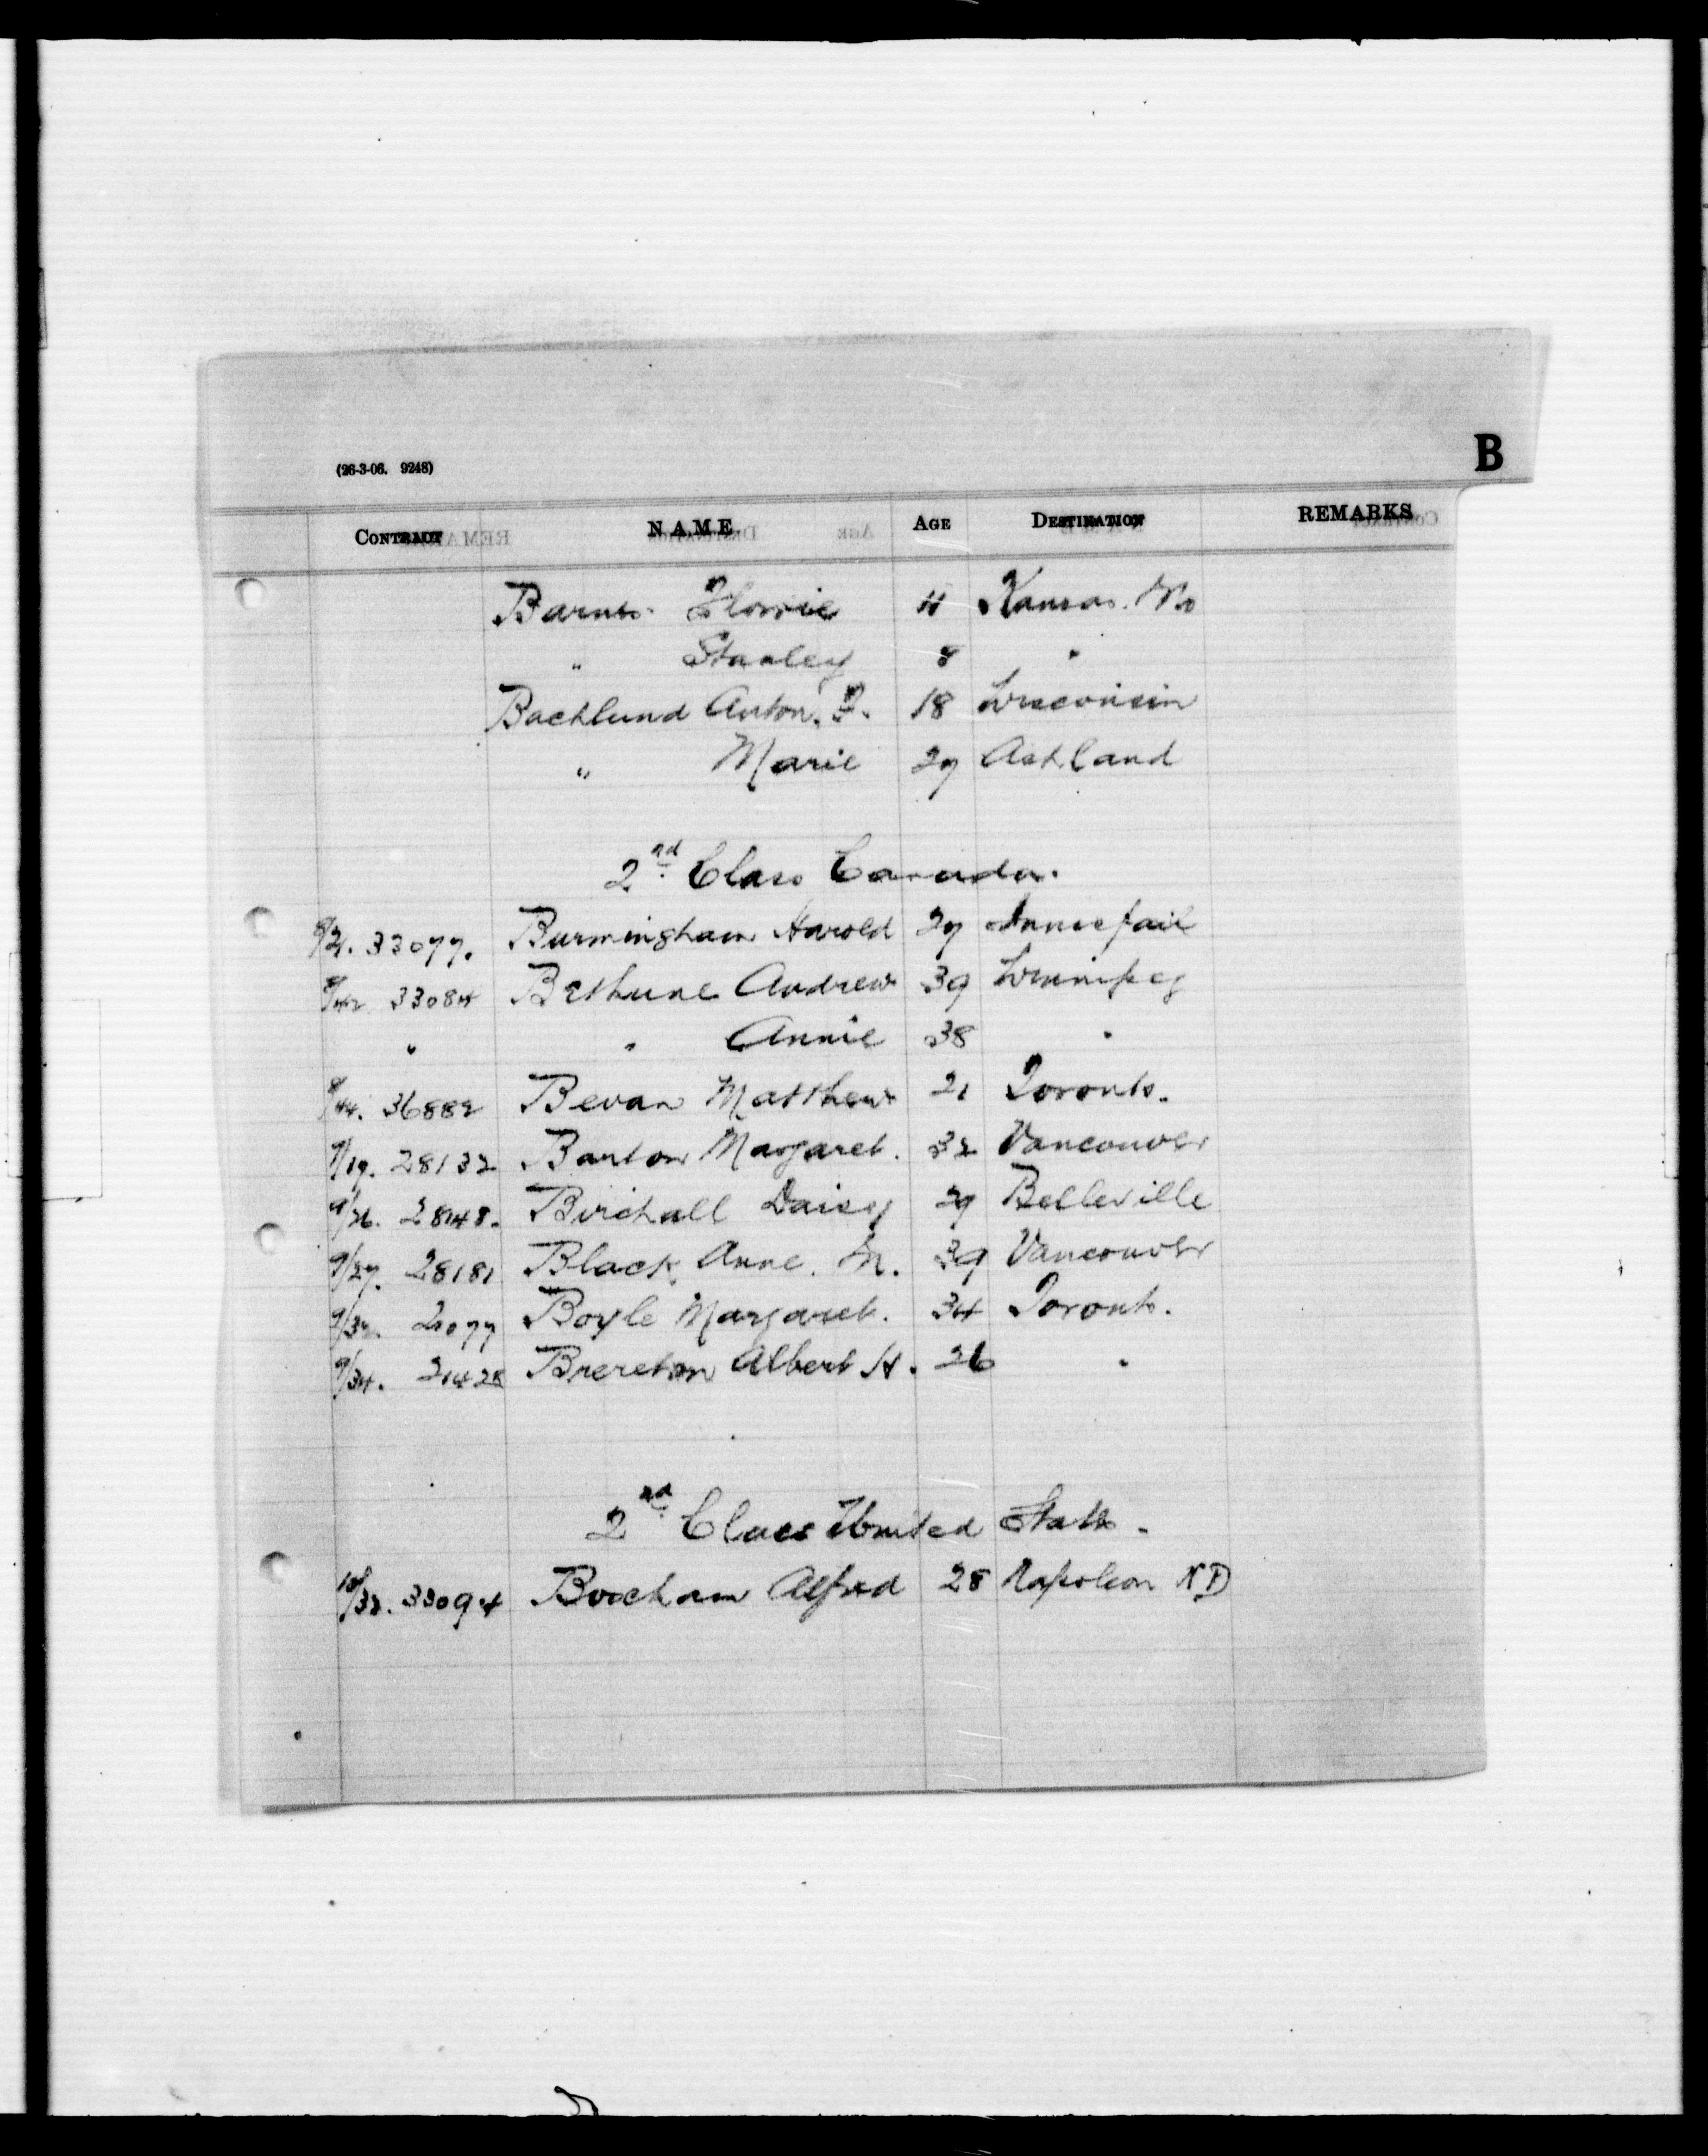 B
(26-3-06. 9248)
CONTRACT NAME AGE DESTINATION REMARKS
Barnes Florrie 11 Kansas. Mo
" Stanley 8 "
Backlund Anton. F. 18 Wisconsin
" Marie 27 Ashland
2nd Class Canada.
8/21. 33077. Burmingham Harold 27 Innisfail
8/42 33084 Bethune Andrew 39 Winnipeg
" " Annie 38 "
8/44. 36882 Bevan Matthew 21 Toronto.
9/19. 28132 Barton Margaret. 32 Vancouver
9/26. 28148. Birchall Daisy 29 Belleville
9/27. 28181 Black Anne. M. 39 Vancouver
9/32. 21077 Boyle Margaret. 34 Toronto.
9/34. 21428 Brereton Albert H. 26 "
2nd Class United States.
10/32. 33094 Alfred 28 Napoleon N.D